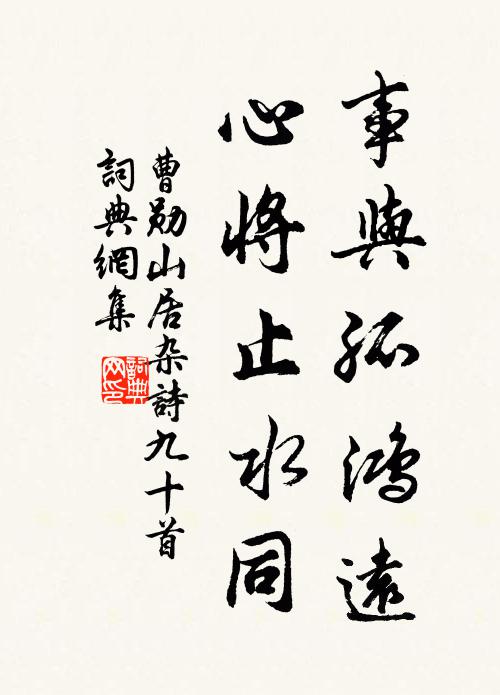 事與孤鴻遠
心將止水同
曹勛山居杂詩九十首
詞典網集
詞典
网印